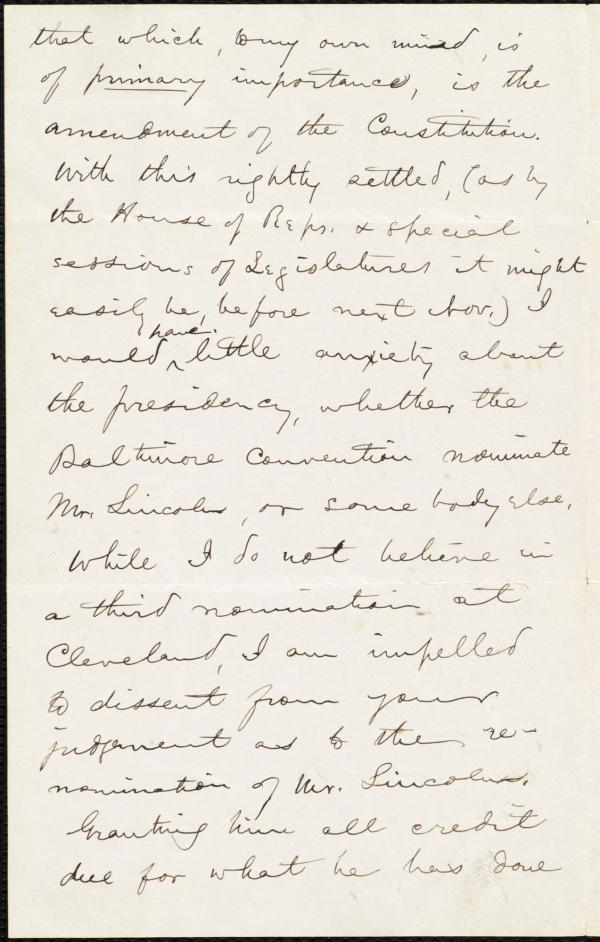 that which, to my own mind, is
of primary importance, is the
amendment of the Constitution.
With this rightly settled, (as by
the House of Reps. & special
sessions of Legislatures it might
easily be, before next Nov.) I
would have little anxiety about
the presidency, whether the
Baltimore Convention nominate
Mr. Lincoln, or some body else.
While I do not believe in
a third nomination at
Cleveland, I am impelled
to dissent from your
judgement as to the re-
nomination of Mr. Lincoln.
Granting him all credit
due for what he has done